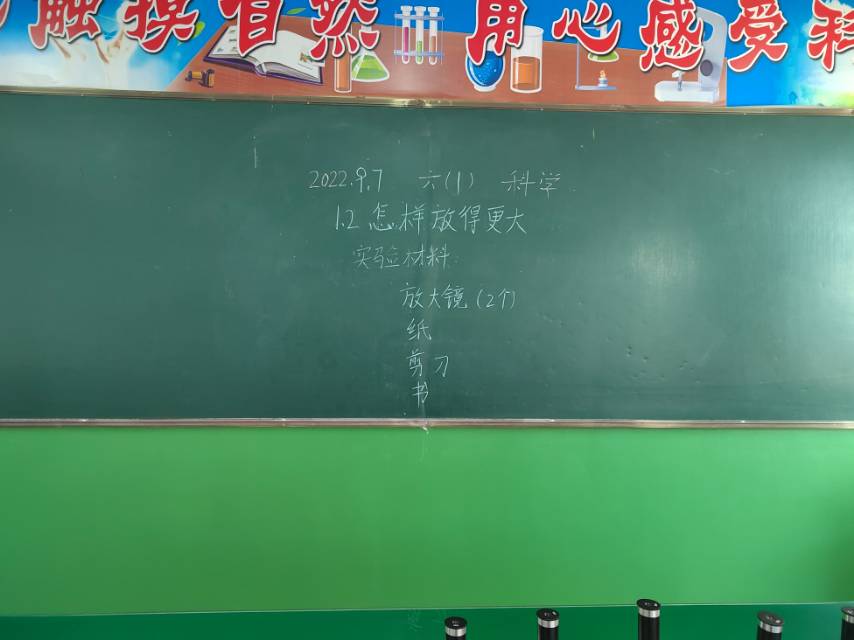 触摸自然 用心感受科
2022.9.7 六(1) 科学
1.2 怎样放得更大
实验材料:
放大镜(2个)
纸
剪刀
书